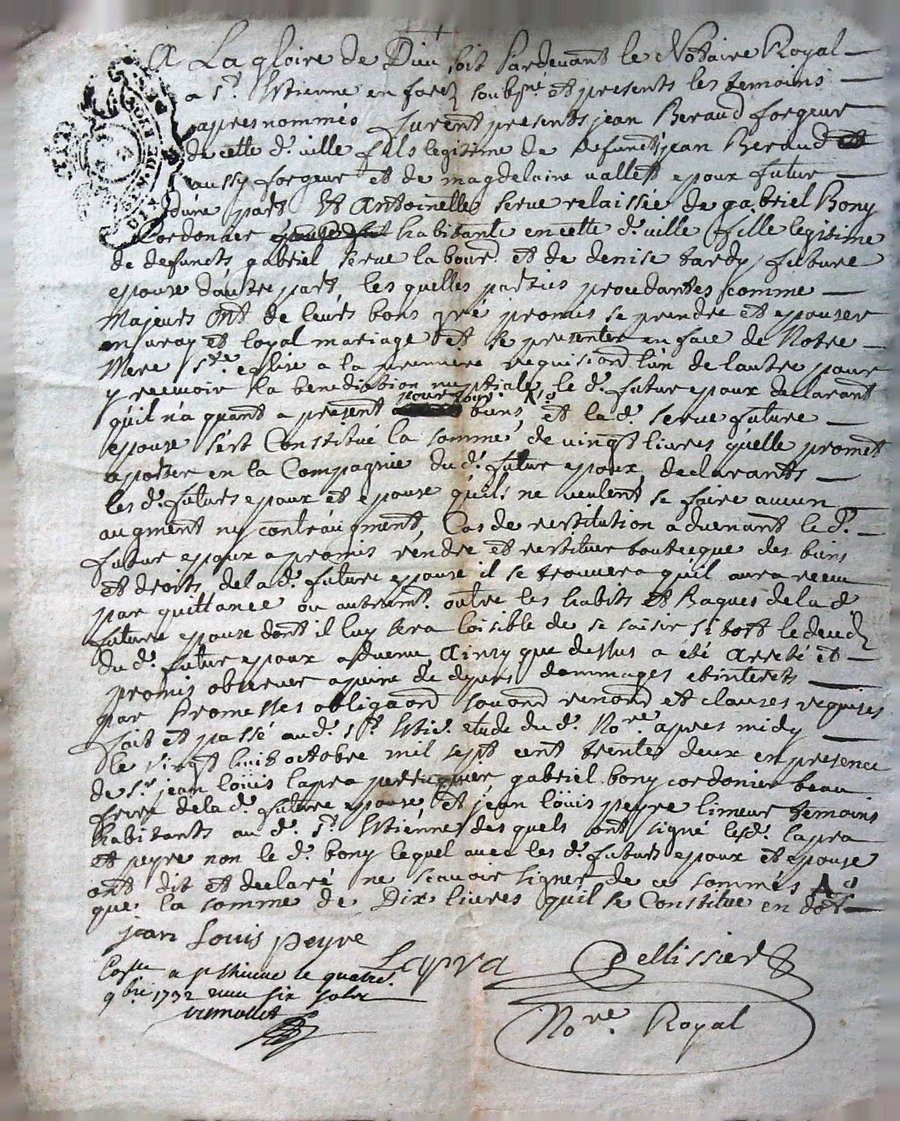 A La gloire de Dieu soit Pardevant le Notaire Royal
a St. Estienne en forez soubsné et presents les temoins
apres nommés furent presents jean Beraud forgeur
de cette d. ville fils legitime de defunct jean Beraud
aussy forgeur et de magdelaine vallett epoux futur
dune part Et Antoinelle serue relaissée de gabriel Bony
Cordonier habitante en cette d. ville fille legitime
de defuncts gabriel serue labour. et de denise tardy future
epouse dautre part, les quelles parties procedantes comme
Majeurs ont de leurs bons gré promis se prendre et epouser
en vray et loyal mariage et se presenter en face de Notre
Mere Ste. eglise a la premiere requisiõn lun de lautre pour
y recevoir la benediction nuptiale, le d. futur epoux declarant
quil na quant a present pour tous biens et la d. serue future
epouse sest Constitué la somme de vingt livres quelle promet
aporter en la Compagnie du d. futur epoux declarants
les d. futurs epoux et epouse quils ne veulent se faire aucun
augment ny contraugment, Cas de restitution advenant le d.
futur epoux a promis rendre et restituer tout ceque des biens
et droits de la d. future epouse il se trouvera quil aura receu
par quittance ou autremt. outre les habits et Bagues de la d.
future epouse dont il luy sera loisible de se saisir si tost le deces
du d. futur epoux advenu Ainsy que dessus a été arreté et
promis observer a peine de depens dommages et interets
par Promesses obligaõn renõn et clauses requises
fait et passé au d. St. Etie. etude du d. Nore. apres midy
le vingt huit octobre mil sept cent trente deux en presence
de Sr. jean loüis lapra perruquier, gabriel bony cordonier beau
frere de la d. future epouse et jean loüis peyre limeur temoins
habitants au d. St. Estienne des quels ont signé les d. lapra
et peyre non le d. bony lequel avec les d. futurs epoux et epouse
ont dit et declaré ne scavoir signer de ce sommés
que la somme de Dix livres quil se Constitue en dot
jean Louis peyre
Lapra Pellissier
a st Etienne le quatre
9bre 1732 six solz
Nore. Royal